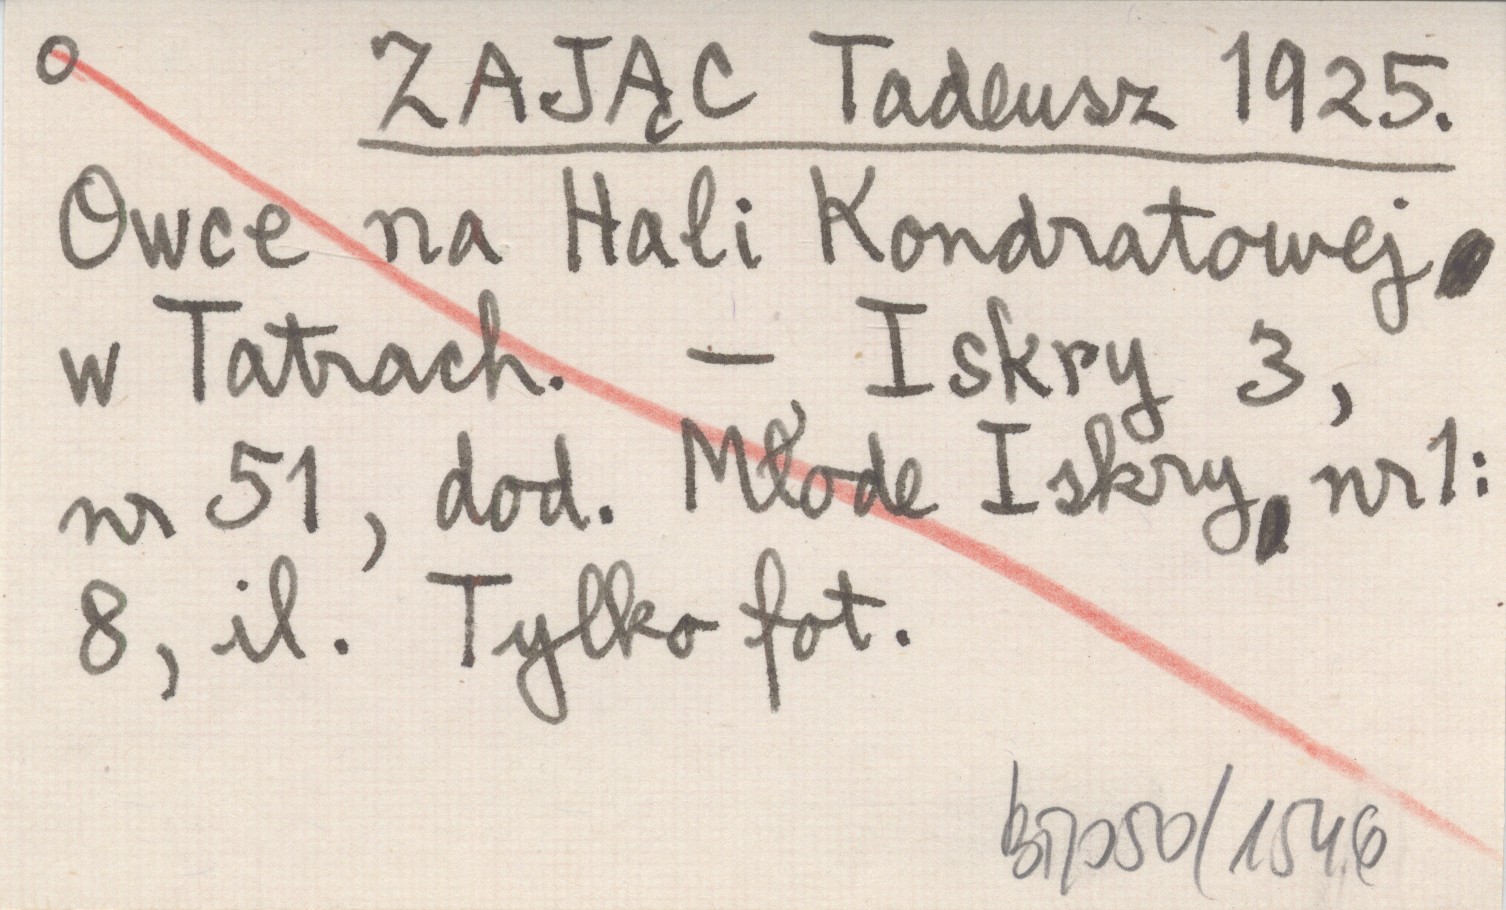 o ZAJĄC Tadeusz 1925.
Owce na Hali Kondratowej
w Tatrach. — Iskry 3,
nr 51, dod. Młode Iskry, nr 1:
8, il. Tylko fot.